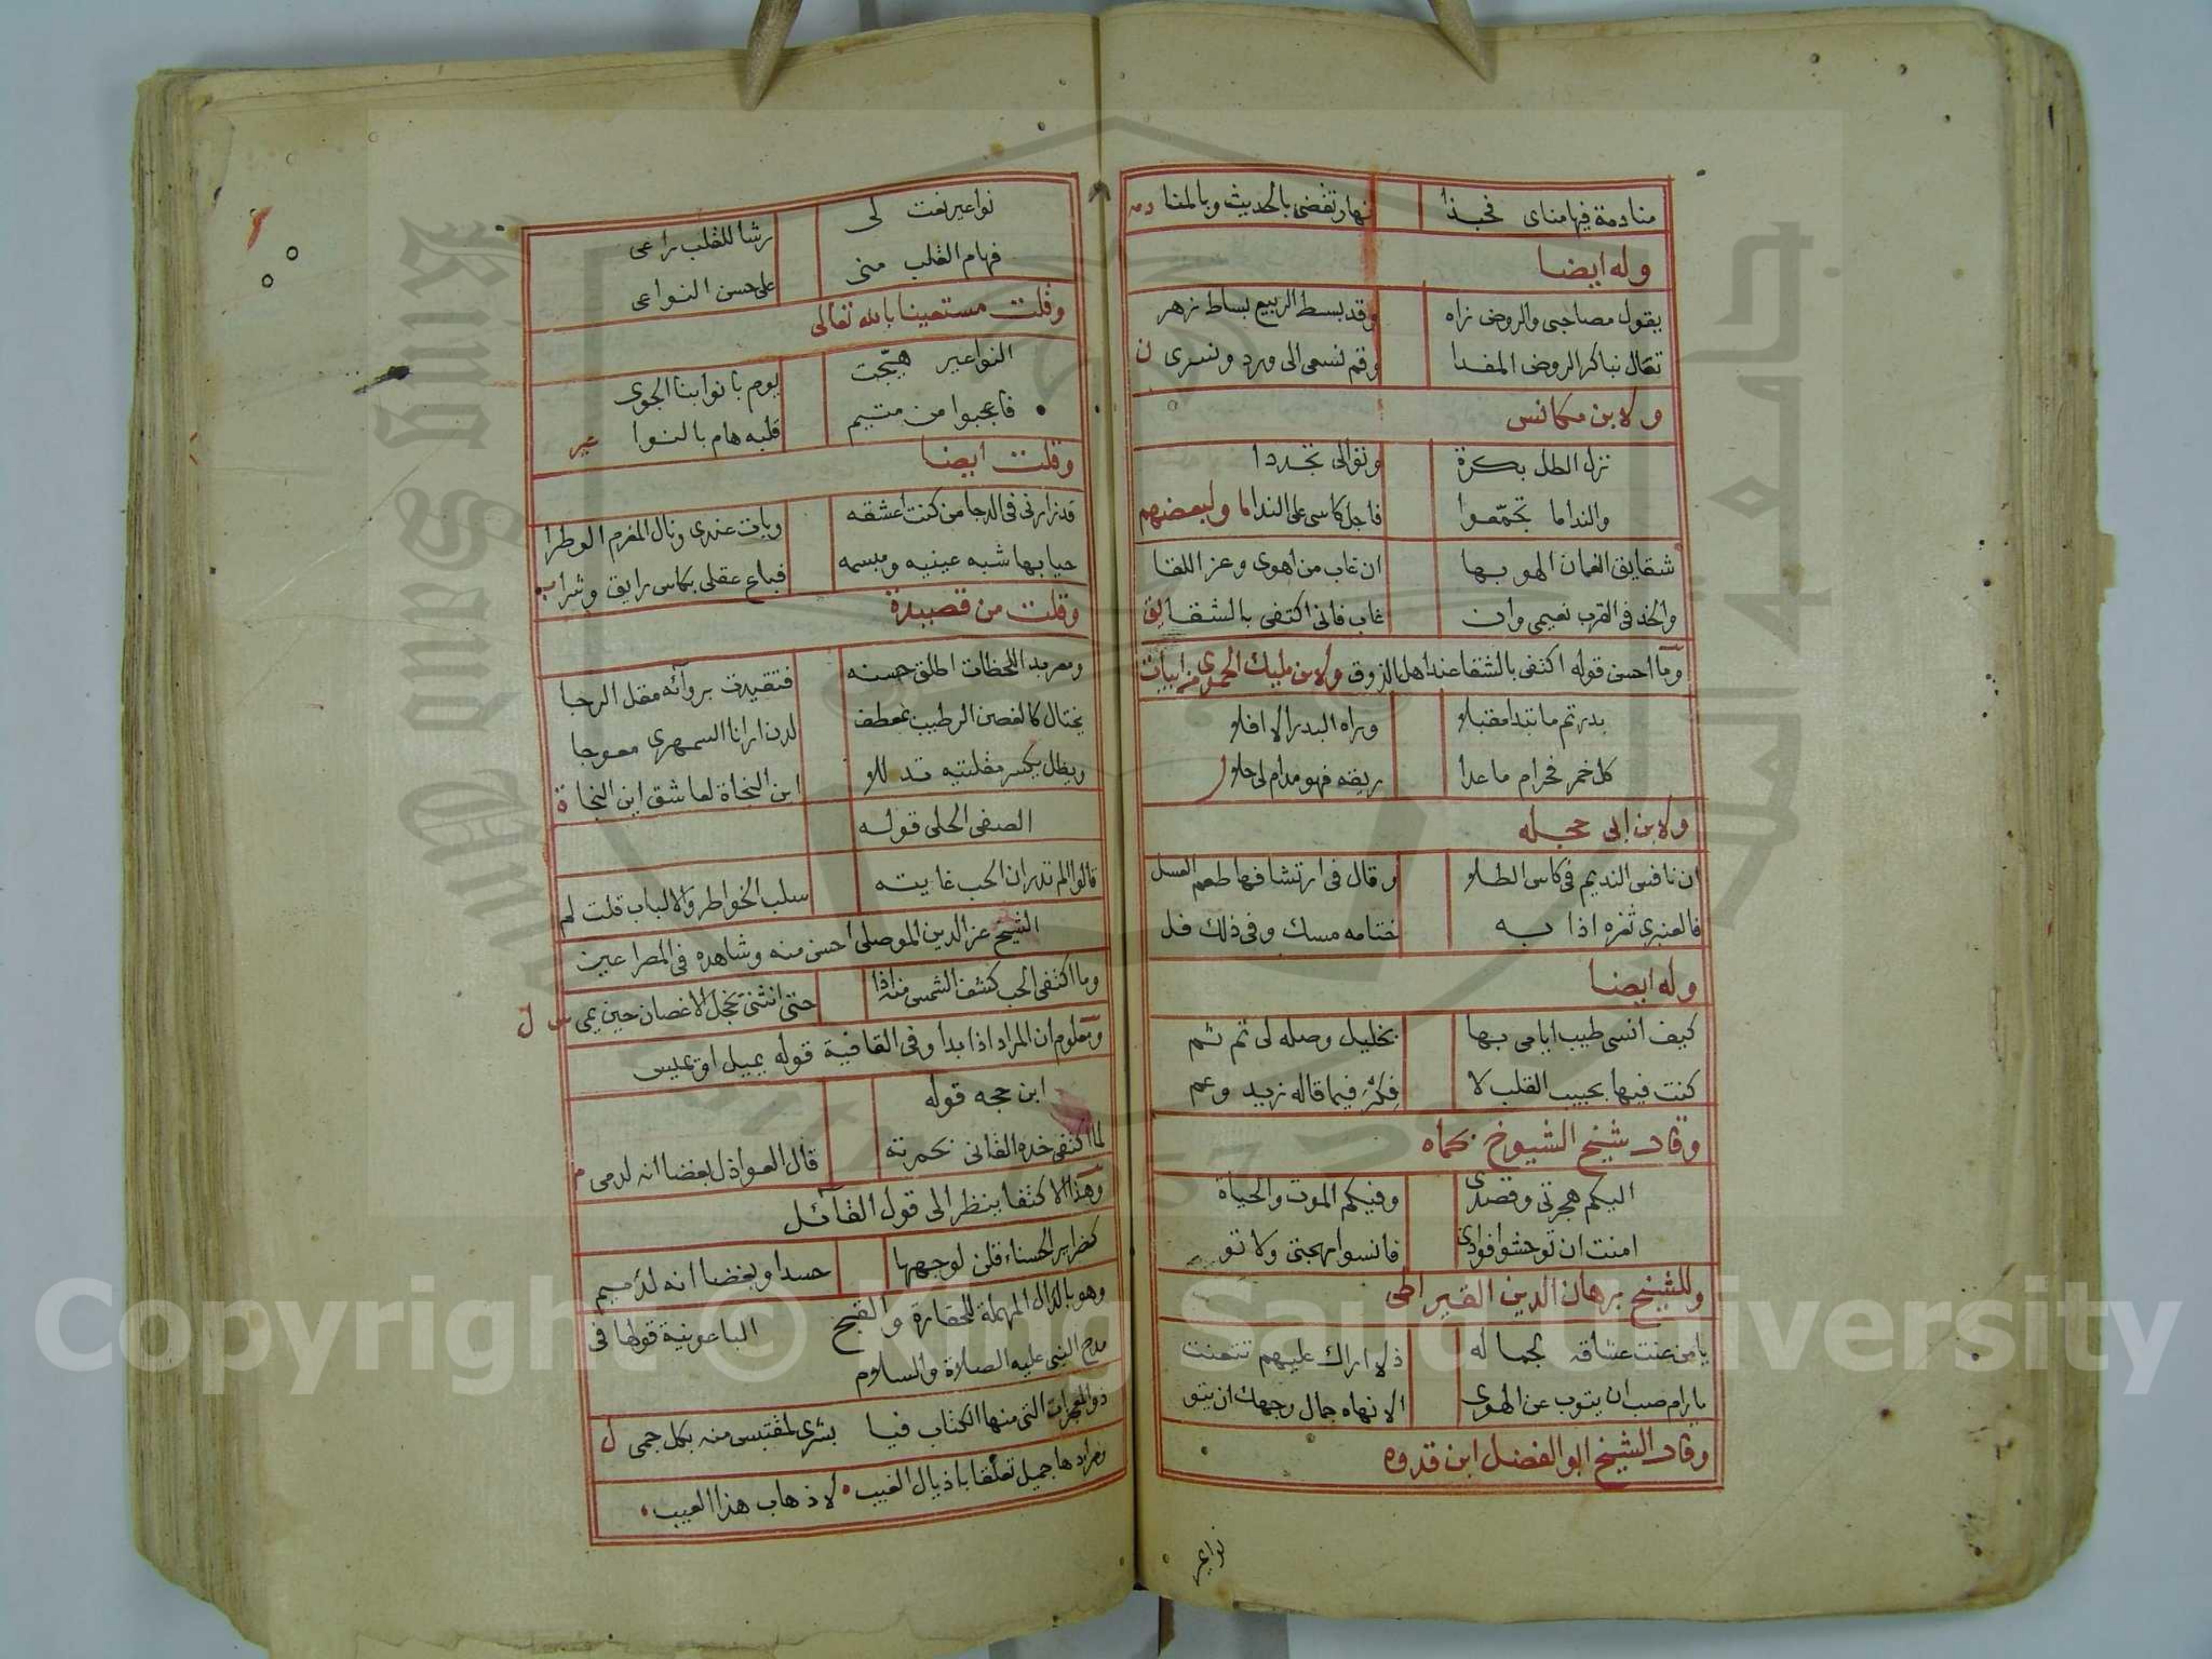 منادمة فيها مناى فحبذا نهار تقضى بالحديث وبالمنا دمه
وله ايضا
يقول مصاحبى والروض زاه وقد بسط الربيع بساط زهر
تعال نباكر الروض المفدا وقم نسعى الى ورد ونسرى ن
ولابن مكانس
نزل الطل بكرة وتوالى تجددا
والنداما تجمّعوا فاجل كاسى على النداما ولبعضهم
شقايق النعمان الهو بها ان غاب من اهوى وعز اللقا
والخد فى القرب نعيمى وان غاب فانى اكتفى بالشقا يق
وما احسن قوله اكتفى بالشقا عند اهل الذوق ولابن مليك الحموى من ابيات
بدر تم ما تبدا مقبلا وراه البدر الا افلا
كل خمر فحرام ما عدا ريقه فهو مدام لى حلا ل
ولابن ابى حجله
ان نافس النديم فى كاس الطلا وقال فى ارتشافها طعم العسل
فالعنبرى ثغره اذا به ختامه مسك وفى ذلك فل
وله ايضا
كيف انسى طيب ايامى بها بخليل وصله لى تم ثم
كنت فيها بحبيب القلب لا فكر فيما قاله زيد وعم
وقال شيخ الشيوخ بحماه
اليكم هجرتى وقصدى وفيكم الموت والحياة
امنت ان توحشوا فوادى فانسوا مهجتى ولا تو
وللشيخ برهان الدين القيراطى
يا من عنت عشاقه لجماله ذلا اراك عليهم تتعنت
ما رام صب ان يتوب عن الهوى الا نهاه جمال وجهك ان يتو
وقال الشيخ ابو الفضل ابن قدوه
نواعير
نواعير نعت لى رشا للقلب راعى
فهام القلب منى على حسن النواعى
وقلت مستعينا بالله تعالى
النواعير هيّجت يوم بانوا بنا الجوى
فاعجبوا من متيم قلبه هام بالنوا عير
وقلت ايضا
قد زارنى فى الدجا من كنت اعشقه وبات عندى ونال المغرم الوطرا
حيا بها شبه عينيه ومبسمه فباع عقلى بكاس رايق وشرا ب
وقلت من قصيدة
ومعربد اللحظات اطلق حسنه فتقيدت بروآئه مقل الرجا
يختال كالغصن الرطيب بمعطف لدن ارانا السمهرى معوجا
ويظل يكسر مقلتيه تدللا اين النجاة لعاشق اين النجا ة
الصفى الحلى قوله
قالوا الم تدر ان الحب غايته سلب الخواطر والالباب قلت لم
الشيخ عز الدين الموصلى احسن منه وشاهده فى المصراعين
وما اكتفى الحب كسف الشمس منه اذا حتى انثنى يخجل الاغصان حين يمى س ل
ومعلوم ان المراد اذا بدا وفى القافية قوله يميل او يميس
ابن حجه قوله
لما اكتفى خده القانى بحمرته قال العواذل بغضا انه لدمى م
وهذا الاكتفا ينظر الى قول القآئل
كضراير الحسناء قلن لوجهها حسدا وبغضا انه لدميم
وهو بالدال المهملة للحقارة والقبح الباعونية قولها فى
مدح النبى عليه الصلاة والسلام
ذو المعجزات التى منها الكتاب فيا بشرى لمقتبس منه بكل جمى ل
ومرادها جميل تعلقا باذيال الغيب لا ذهاب هذا العيب
Copyright © King Saud University